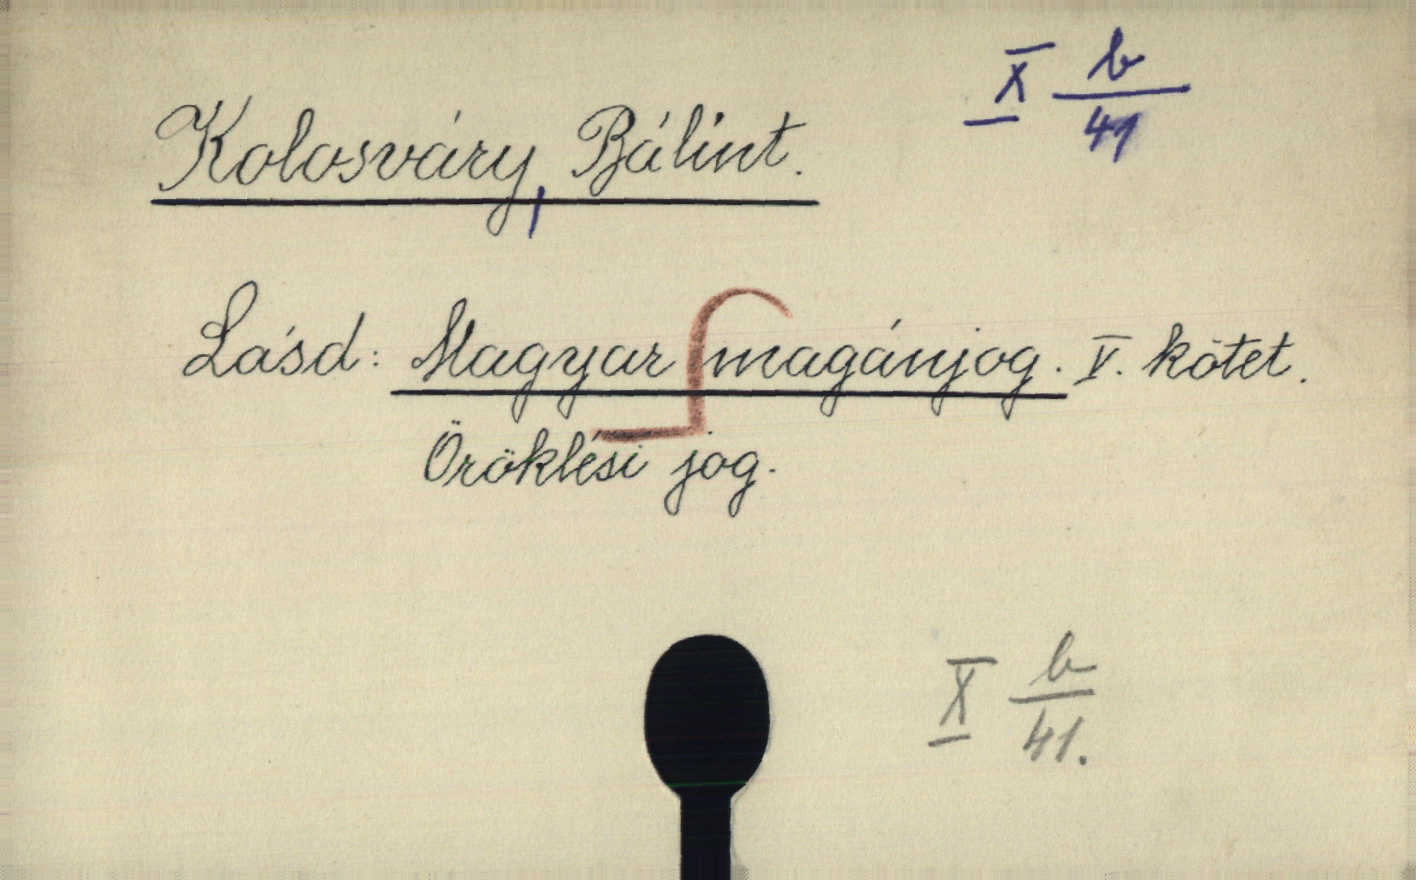 X b/41
Kolosváry, Bálint.
Lásd: Magyar magánjog. V. kötet.
Öröklési jog.
X b/41.